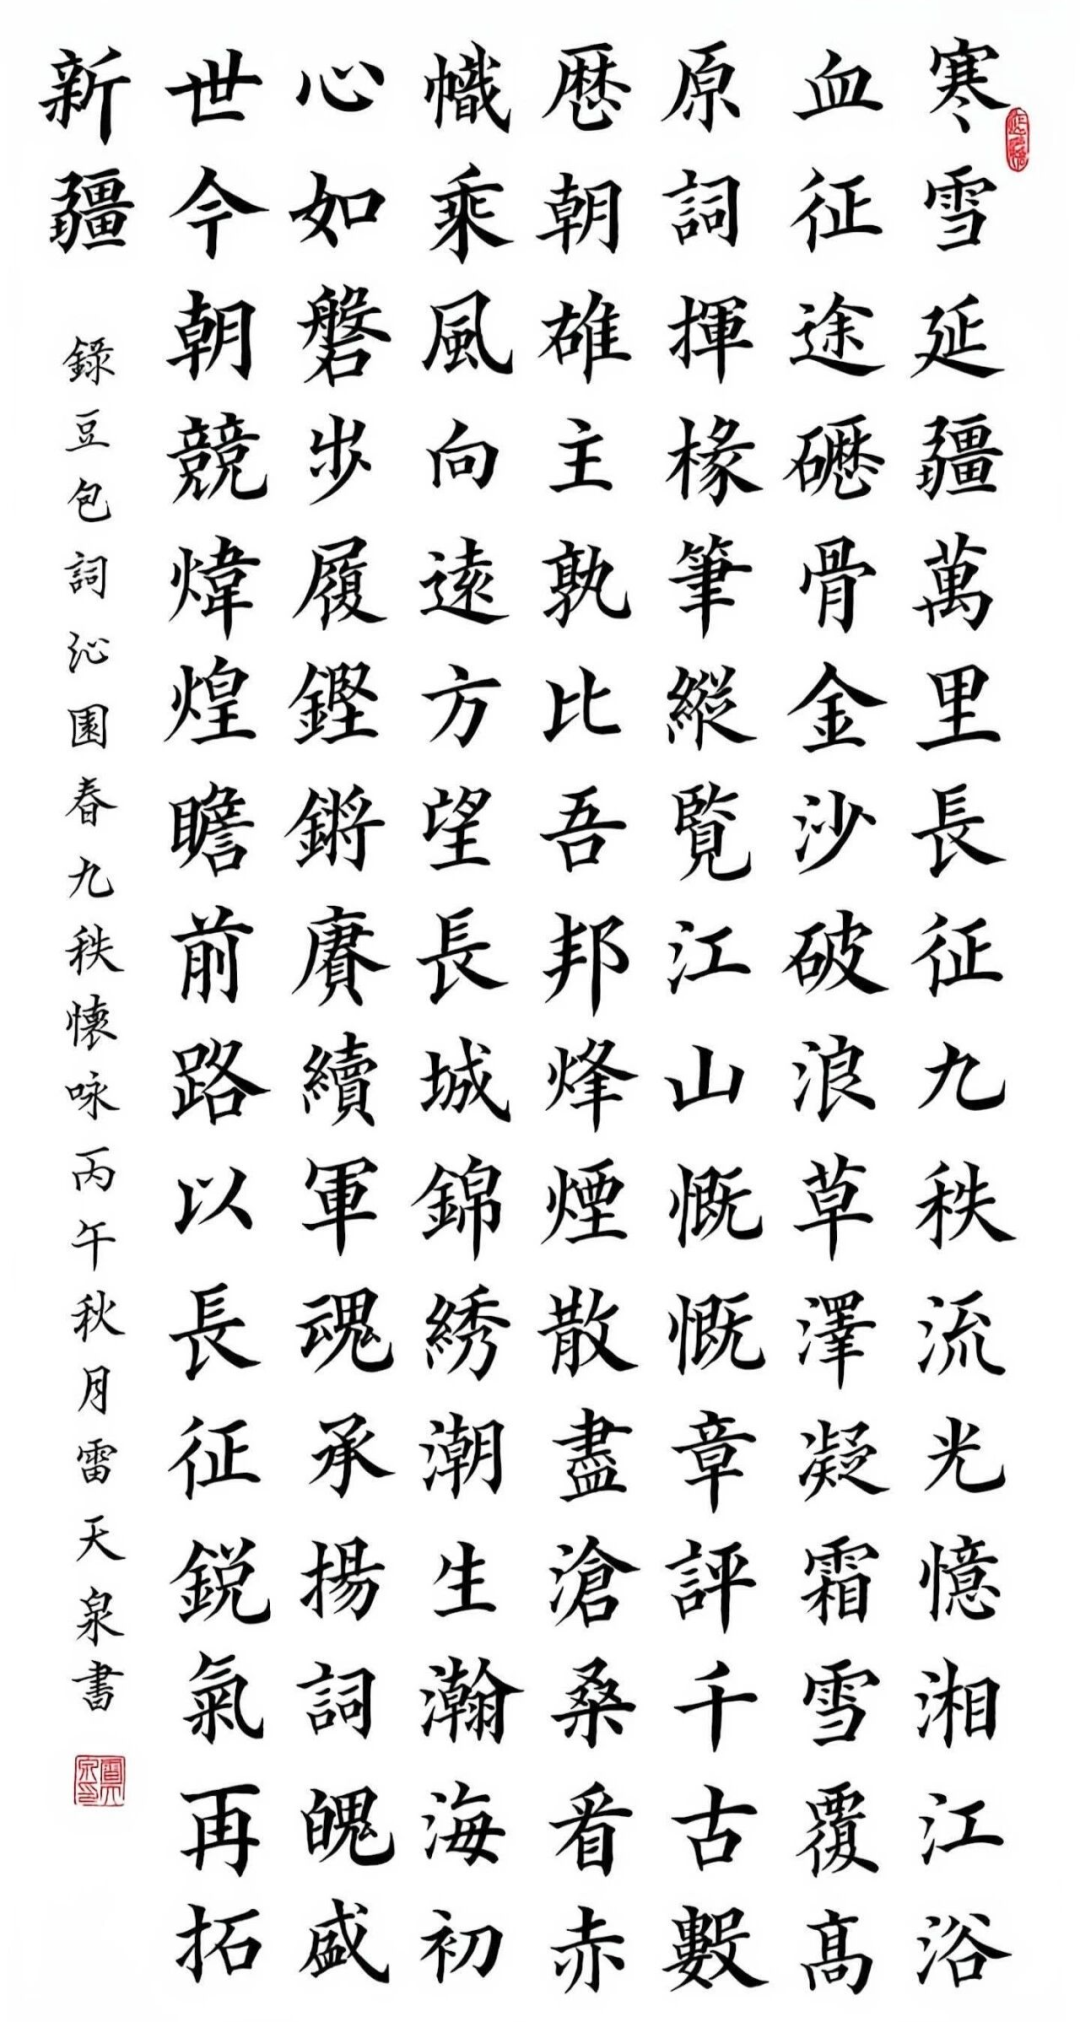 寒雪延疆萬里長征九秩流光憶湘江浴
血征途礰骨金沙破浪草澤凝霜雪覆高
原詞揮椽筆縱覽江山慨慨章評千古數
歷朝雄主孰比吾邦烽煙散盡滄桑看赤
幟乘風向遠方望長城錦綉潮生瀚海初
心如磐步履鏗鏘賡續軍魂承揚詞魄盛
世今朝競煒煌瞻前路以長征銳氣再拓
新疆
錄豆包詞沁園春九秩懷咏丙午秋月雷天泉書